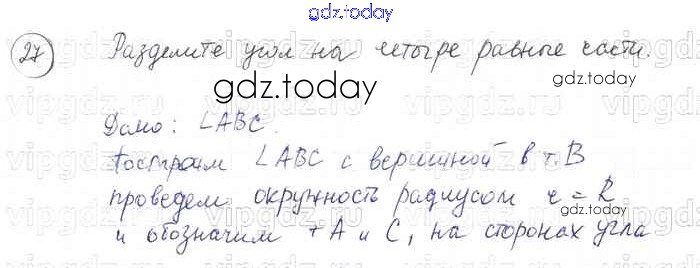 gdz.today
27 Разделите угол на четыре равные части.
gdz.today
Дано: ∠ABC.
Построим ∠ABC с вершиной в т. B
проведем окружность радиусом r = R
gdz.today
и обозначим т A и C, на сторонах угла